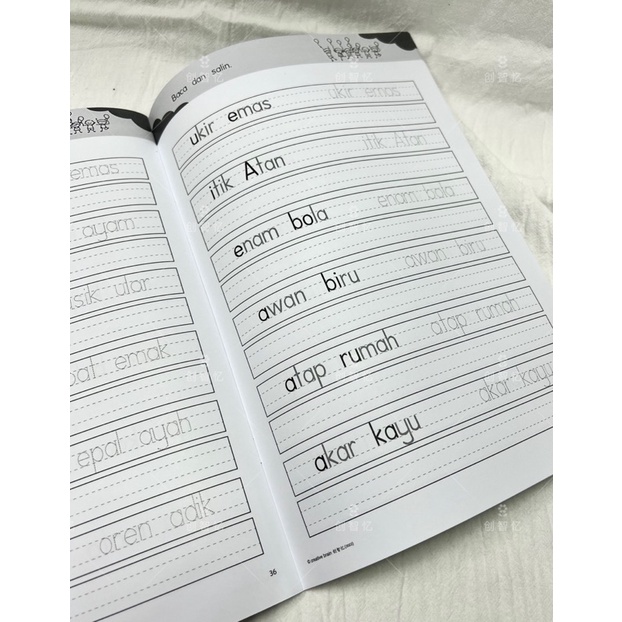 emas
ayam
ular
emak
epal ayah
oren adik
36
Baca dan salin.
ukir emas ukir emas
itik Atan itik Atan
enam bola enam bola
awan biru awan biru
atap rumah atap rumah
akar kayu akar kayu
创智忆